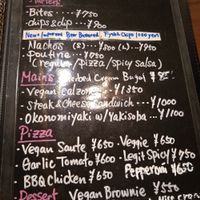 - Bites..... ¥750
- chips & dip.... ¥700
New! Beer Battered Fish Chips
- Nachos (S)... ¥500 (L).. ¥950
- Poutine... ¥750
(regular / pizza / spicy Salsa)
Mains
- Vegan Calzone... ¥1350
- Steak & Cheese Sandwich... ¥1000
- Okonomiyaki w/Yakisoba... ¥1000
Pizza
Vegan Saute ¥650
Veggie ¥650
Garlic Tomato ¥600
Legit Spicy ¥750
BBQ Chicken ¥650
Pepperoni ¥650
Dessert
Vegan Brownie ¥550